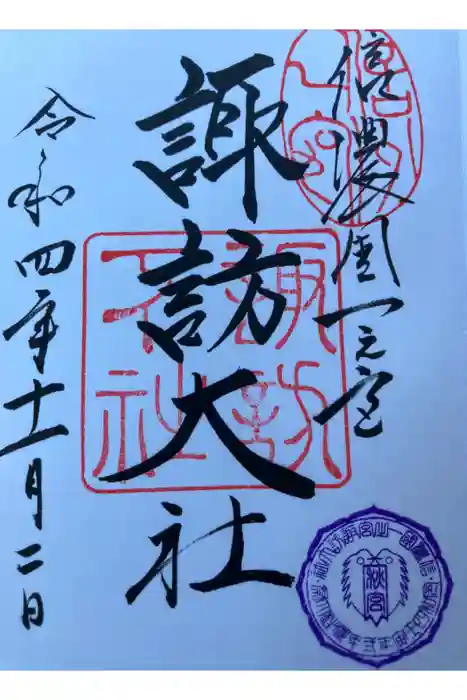 信濃國一之宮
諏訪大社
令和四年十一月二日
諏訪大社
秋宮